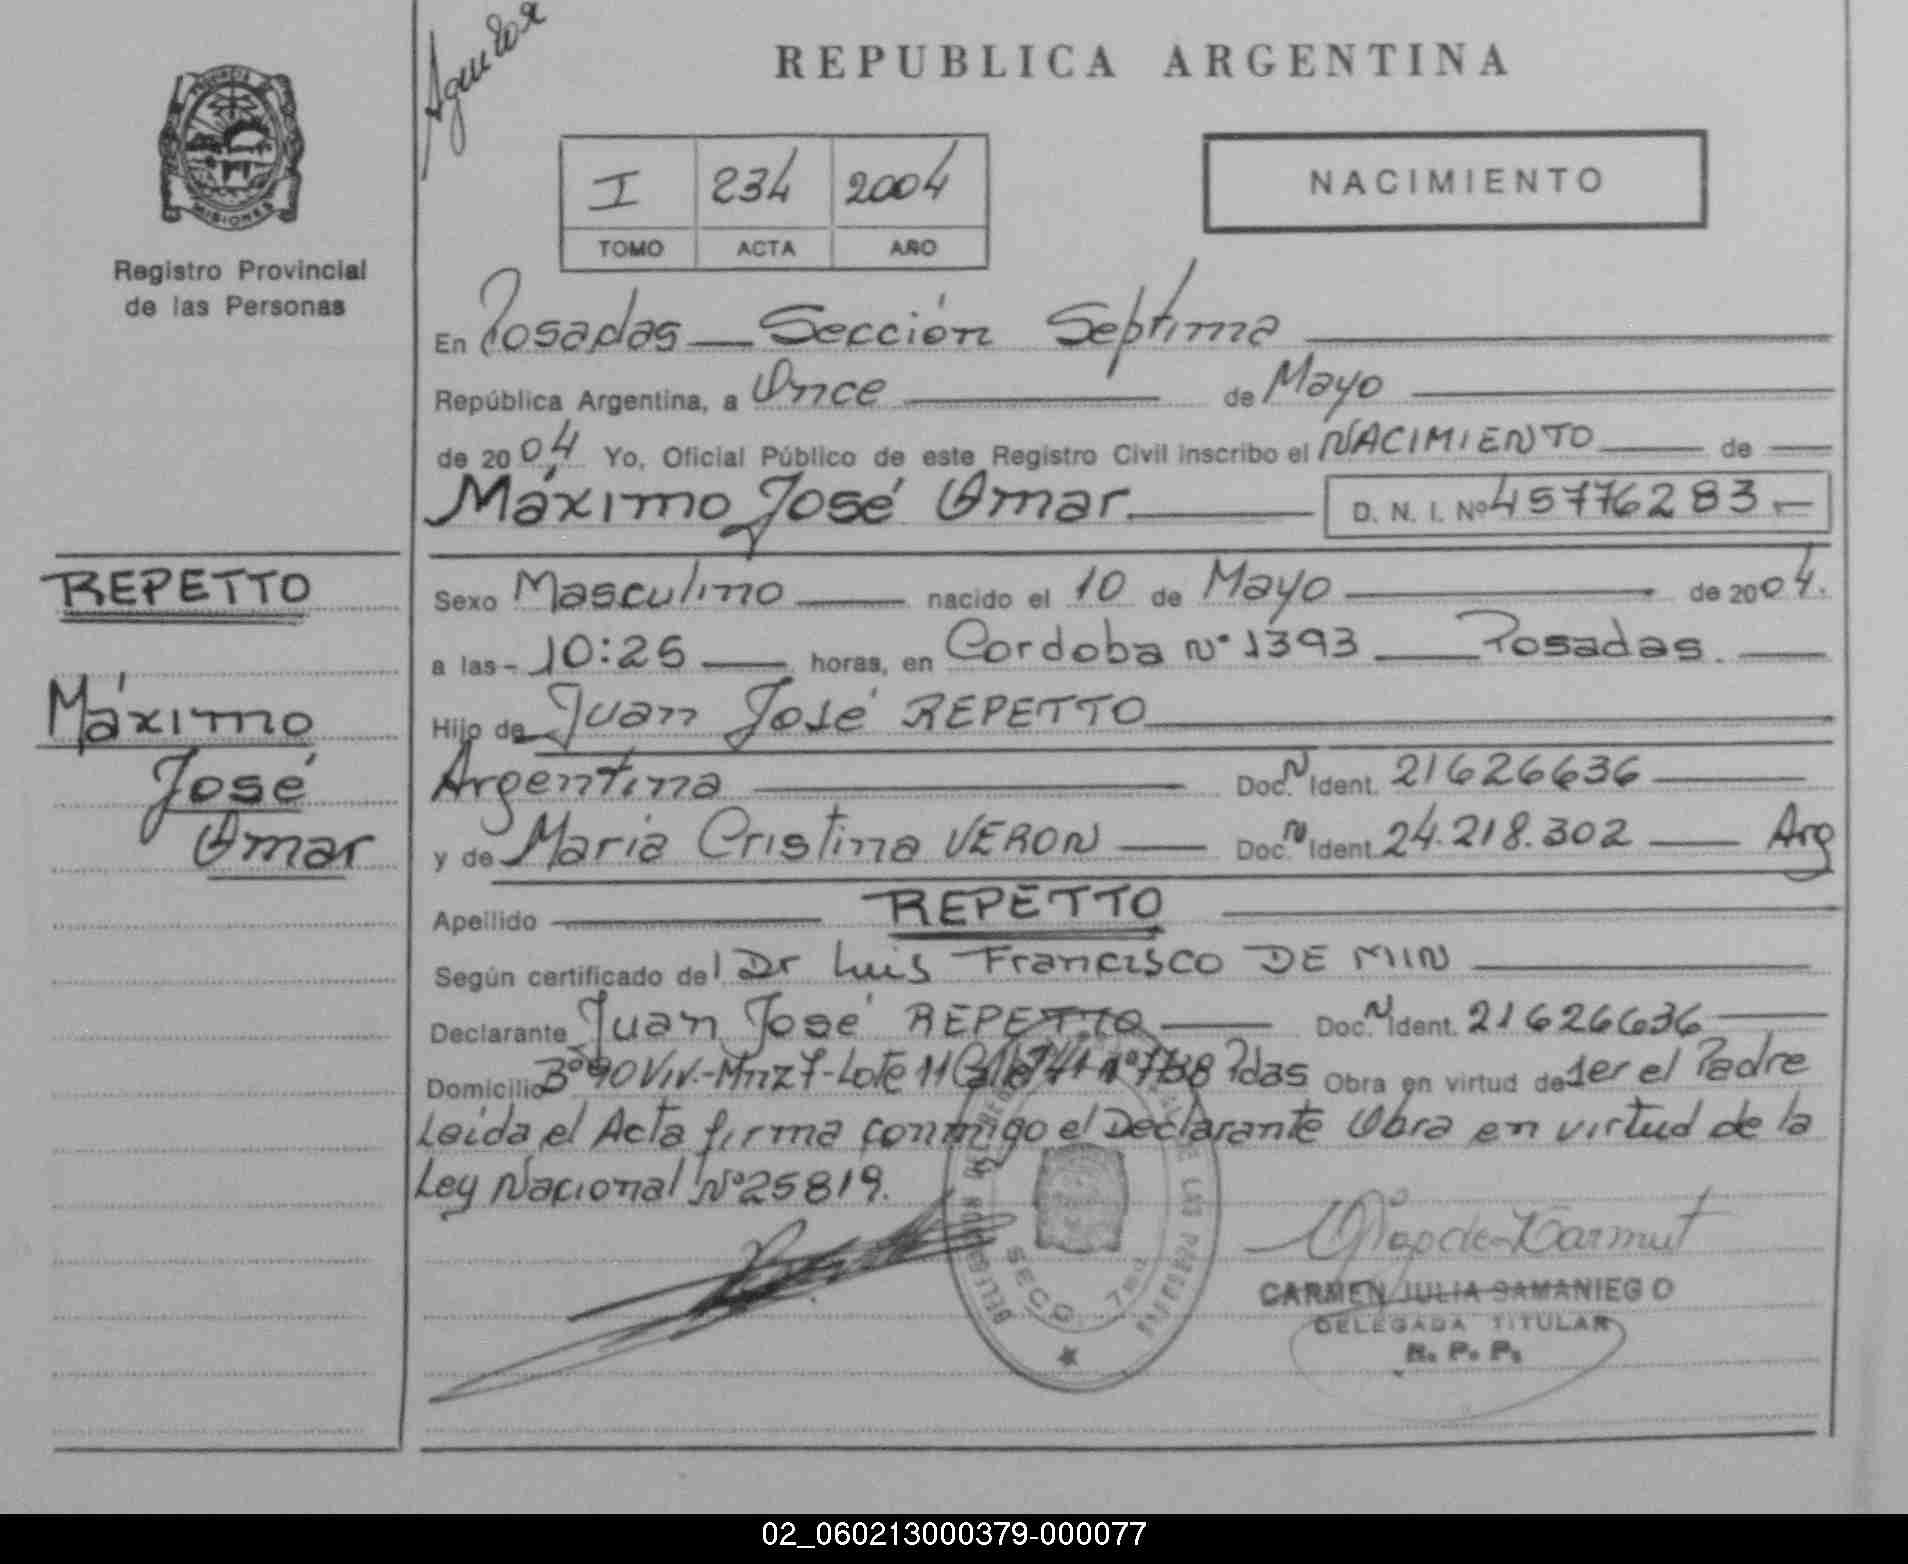 Aguilar
REPUBLICA ARGENTINA
PROVINCIA
MISIONES
Registro Provincial
de las Personas
I 234 2004
TOMO ACTA AÑO
NACIMIENTO
En Posadas Sección Septima
República Argentina, a Once de Mayo
de 2004 Yo, Oficial Público de este Registro Civil inscribo el NACIMIENTO de
Máximo José Omar D. N. I. Nº 45776283.-
REPETTO
Máximo
José
Omar
Sexo Masculino nacido el 10 de Mayo de 2004.
a las - 10:25 horas, en Cordoba Nº 1393 Posadas.
Hijo de Juan José REPETTO
Argentina Doc. N Ident. 21626636
y de Maria Cristina VERON Doc. N Ident. 24.218.302 Arg
Apellido REPETTO
Según certificado del Dr Luis Francisco DE MIN
Declarante Juan José REPETTO Doc. N Ident. 21626636
Domicilio Bº 90 Viv.-Mnz 7-Lote 11 Pdas Obra en virtud de 1er el Padre
Leida el Acta firma conmigo el Declarante Obra en virtud de la
Ley Nacional Nº 25819.
SECC. 7ma
CARMEN JULIA SAMANIEGO
DELEGADA TITULAR
R. P. P.
02_060213000379-000077